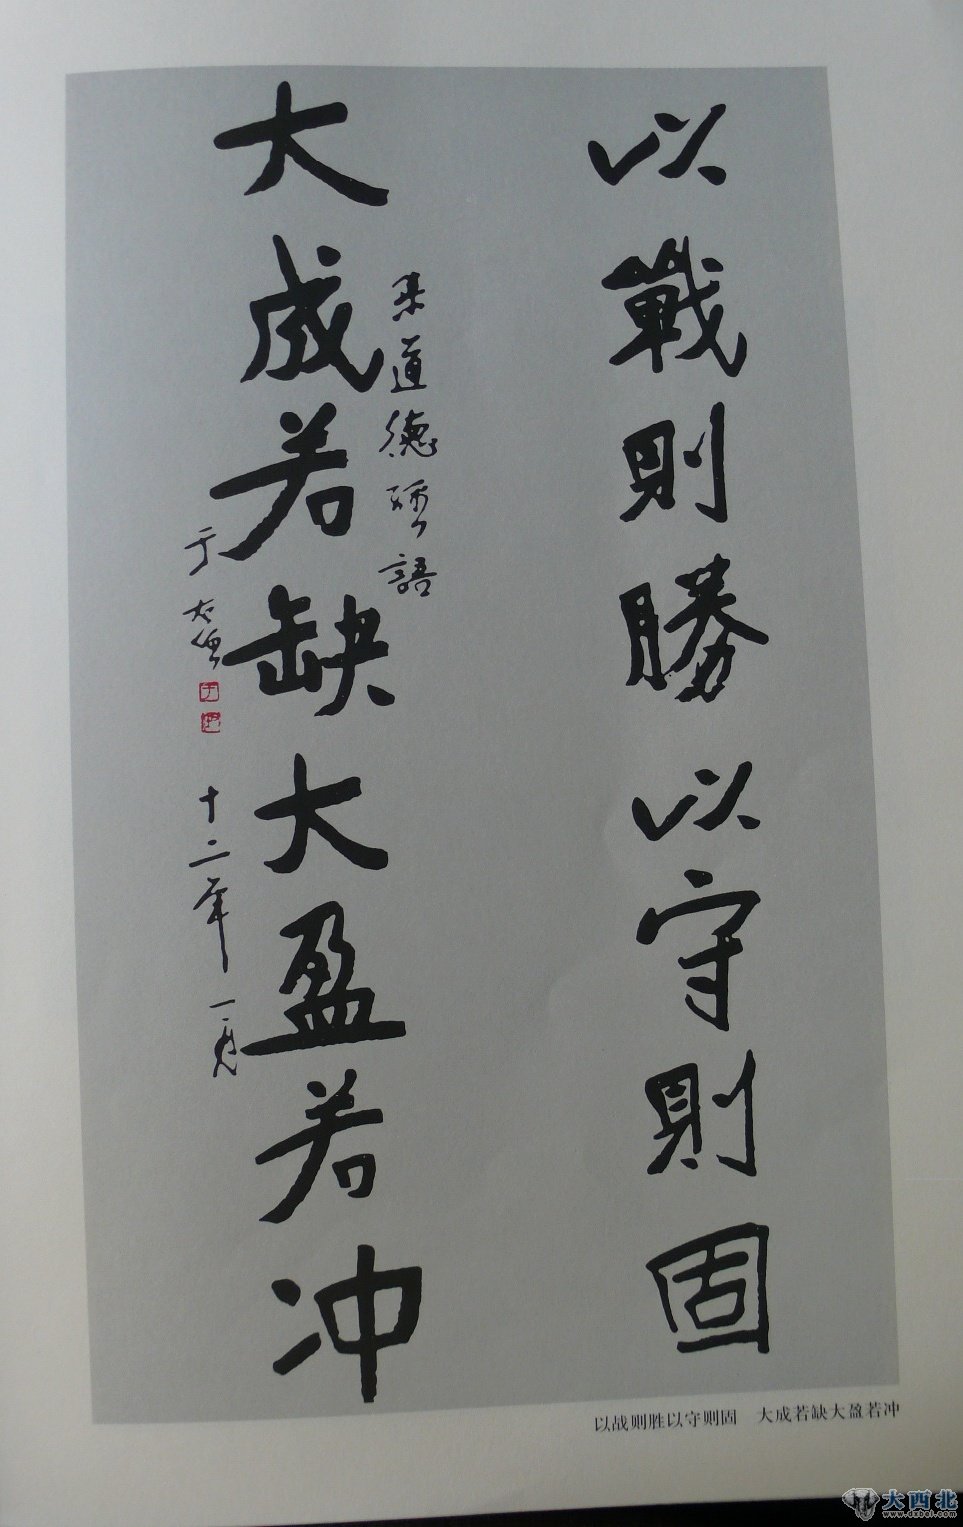 以戰則勝以守則固
大成若缺大盈若冲
集道德經語
于右任
十二年一月
以战则胜以守则固 大成若缺大盈若冲
大西北
www.dxbei.com